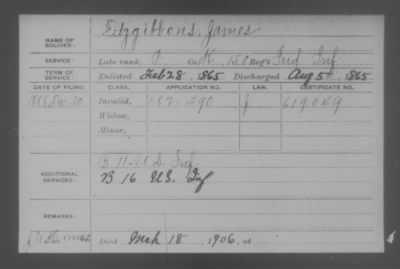 Fitzgibbons, James
NAME OF SOLDIER:
SERVICE: Late rank, P. Co. K, 150 Reg't Ind. Inf.
TERM OF SERVICE: Enlisted Feb 28, 1865 Discharged Aug 5, 1865
DATE OF FILING. CLASS. APPLICATION NO. LAW. CERTIFICATE NO.
1888, Dec. 20 Invalid, 490 619,049
Widow,
Minor,
ADDITIONAL SERVICES: B. 11. U.S. Inf.
B 16 U.S. Inf
REMARKS:
Died Mch 18, 1906, at